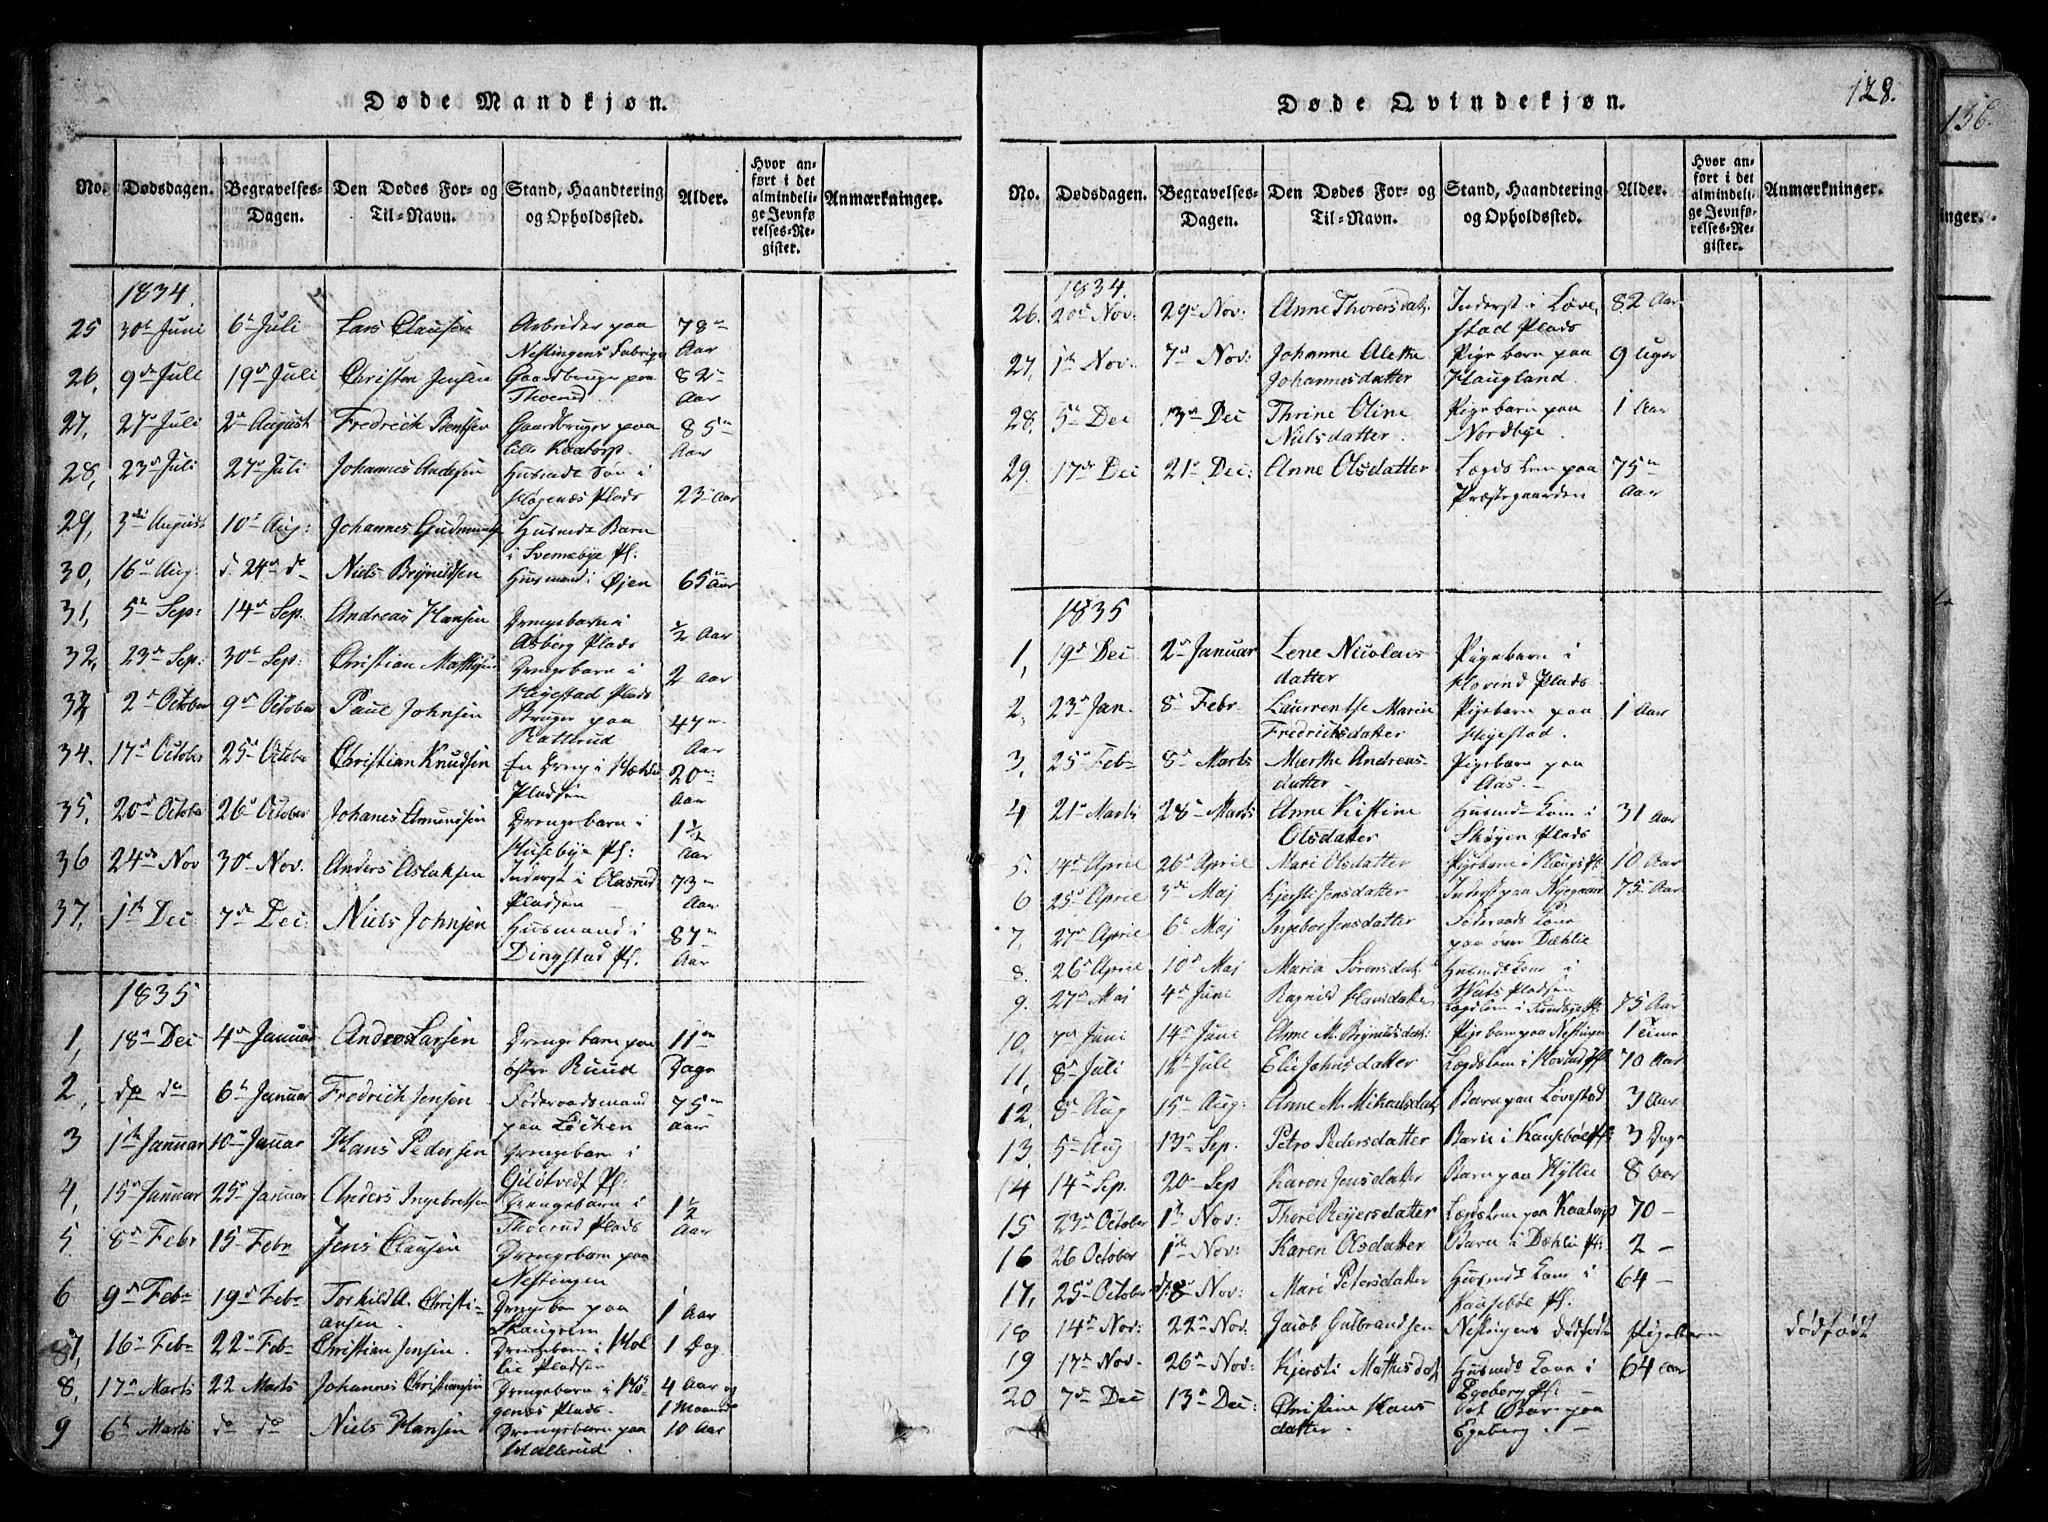 Døde Mandkjøn.
No. Dødsdagen. Begravelses-Dagen. Den Dødes For- og Til-Navn. Stand, Haandtering og Opholdssted. Alder. Hvor anført i det almindelige Jevnførelses-Register. Anmærkninger.
1834.
25 30t Juni 6t Juli Lars Clausen Arbeider paa 78
Nestingens Fabrique Aar
26, 9de Juli 19de Juli Christen Jensen Gaardbruger paa 82
Thoerud Aar
27, 27de Juli 2de August Fredrick Bentsen Gaardbruger paa 85
lille Kaatorp. Aar
28, 23de Juli 27de Juli Johannes Andersen Husmds Søn i
Høgenæs Plads 23 Aar
29, 3die August 10de Aug: Johannes Gudmunds Husmds Barn
i Svennebye Pl:
30, 16de Aug: d. 24de do Niels Brynildsen Husmand i Øjen 65 Aar
31, 5te Sep: 14de Sep. Andreas Hansen Drengebarn i
Aasberg Plads ½ Aar
32, 23de Sep: 30te Sep: Christian Mathisen Drengebarn i
Hejestad Plads 2 Aar
33, 2den October 9de October Paul Johnsen Bruger paa 47
Rattrud Aar
34. 17de October 25de October Christian Knudsen En Dreng i 20
Pladsen Aar
35. 20de October 26de October Johanes Amundsen Drengebarn i 1½
Husebye Pl: Aar
36 24de Nov 30te Nov. Anders Aslaksen Inderst i Olasrud 73
Pladsen Aar
37, 1ste Dec 7de Dec: Niels Johnsen Husmand i 87
Dingstad Pl. Aar
1835
1, 18de Dec 4de Januar Anders Larsen Drengebarn paa 11
østre Ruud Dage
2, do do 6te Januar Fredrich Jensen Føderaadsmand 75
paa Løchen Aar
3 1ste Januar 10de Januar Hans Pedersen Drengebarn i
Gildtvedt Pl:
4, 15de Januar 25de Januar Anders Ingebretsen Drengebarn i 1½
Thoerud Plads Aar
5. 8de Febr 15de Febr Jens Clausen Drengebarn paa
Nestingen
6 9de Febr 19de Febr Torkild A. Christi- Drengebn paa
ansen. Skaugelm 1 Aar
7, 16de Febr 22de Febr Christian Jensen. Drengebarn i Hol 1 Dag
lie Pladsen
8, 17de Marts 22 Marts Johannes Christiansen Drengebarn i Hø- 4 Aar og
genæs Plads. 1 Maaned
9 6te Marts do do Niels Hansen Drengebarn paa 10 Aar
Wallerud
Døde Qvindekjøn.
128.
136.
No. Dødsdagen. Begravelses-Dagen. Den Dødes For- og Til-Navn. Stand, Haandtering og Opholdssted. Alder. Hvor anført i det almindelige Jevnførelses-Register. Anmærkninger.
inger.
1834.
26. 20de Nov: 29de Nov: Anne Thorersdat. Inderst i Løve 82 Aar
stad Plads
27, 1ste Nov: 7de Nov: Johanne Alethe Pigebarn paa 9 Uger
Johannesdatter Haugland.
28. 5te Dec 13de Dec Thrine Oline Pigebarn paa 1 Aar
Nielsdatter. Nordbye.
29. 17de Dec 21de Dec: Anne Olsdatter Lægdslem paa 75
Præstegaarden Aar
1835
1, 19de Dec 2de Januar Lene Nicolais Pigebarn i
datter Hovind Plads
2, 23de Jan. 8de Febr Laurentse Marie Pigebarn paa 1 Aar
Fredrichsdatter Hejestad.
3, 25de Feb 8de Marts Marthe Andreas- Pigebarn paa
datter Aas.
4 21de Marts 28de Marts Anne Kistine Husmds Kone i 31 Aar
Olsdatter Skøyen Plads
5. 14de April 26de April Mari Olsdatter Pigebarn i Haugs Pl 10 Aar
6 25de April 3de Maj Kjersti Jensdatter Inderst paa Nyegaard 75 Aar
7, 27de April 6te Maj Ingebor Jensdatter Føderaads Kone
paa øvre Dæhlie
8. 26de April 10de Maj Maria Sørensdat. Husmds Kone i
Pladsen
9. 27de Maj 4de Juni Ragnild Hansdatter Lægdslem i Sundbye Pl 75 Aar
10, 7de Juni 14de Juni Anne M. Brynildsdat: Pigebarn paa Nestingen 1 Time
11, 8de Juli 12te Juli Elie Johnsdatter Lægdslem i Hovind Pl 70 Aar
12 8de Aug 15de Aug: Anne M. Mikaelsdat. Barn paa Løvestad 3 Aar
13, 5te Aug 13de Sep. Petro Pedersdatter Barn i Kausebøl Pl: 3 Dage
14 14de Sep. 20de Sep Karen Jensdatter Barn paa Hyllie 8 Aar
15 23de October 1ste Nov: Thore Reyersdatter Lægdslem paa Kaatorp 70 —
16 26 October 1ste Nov: Karen Olsdatter Barn i Dæhlie Pl: 2 —
17, 25de October d: 8de Nov: Mari Petersdatter Husmds Kone i 64 —
Kausebøl Pl.
18 14de Nov: 22de Nov. Jacob Gulbrandsen Nestingens dødfødt Pigebarn dødfødt
19 17de Nov. 26de Nov: Kjersti Mathisdat Husmds Kone i 64 Aar
Egeberg Pl:
20 7de Dec 13de Dec: Christine Hans Et Barn paa
datter. Egeberg.